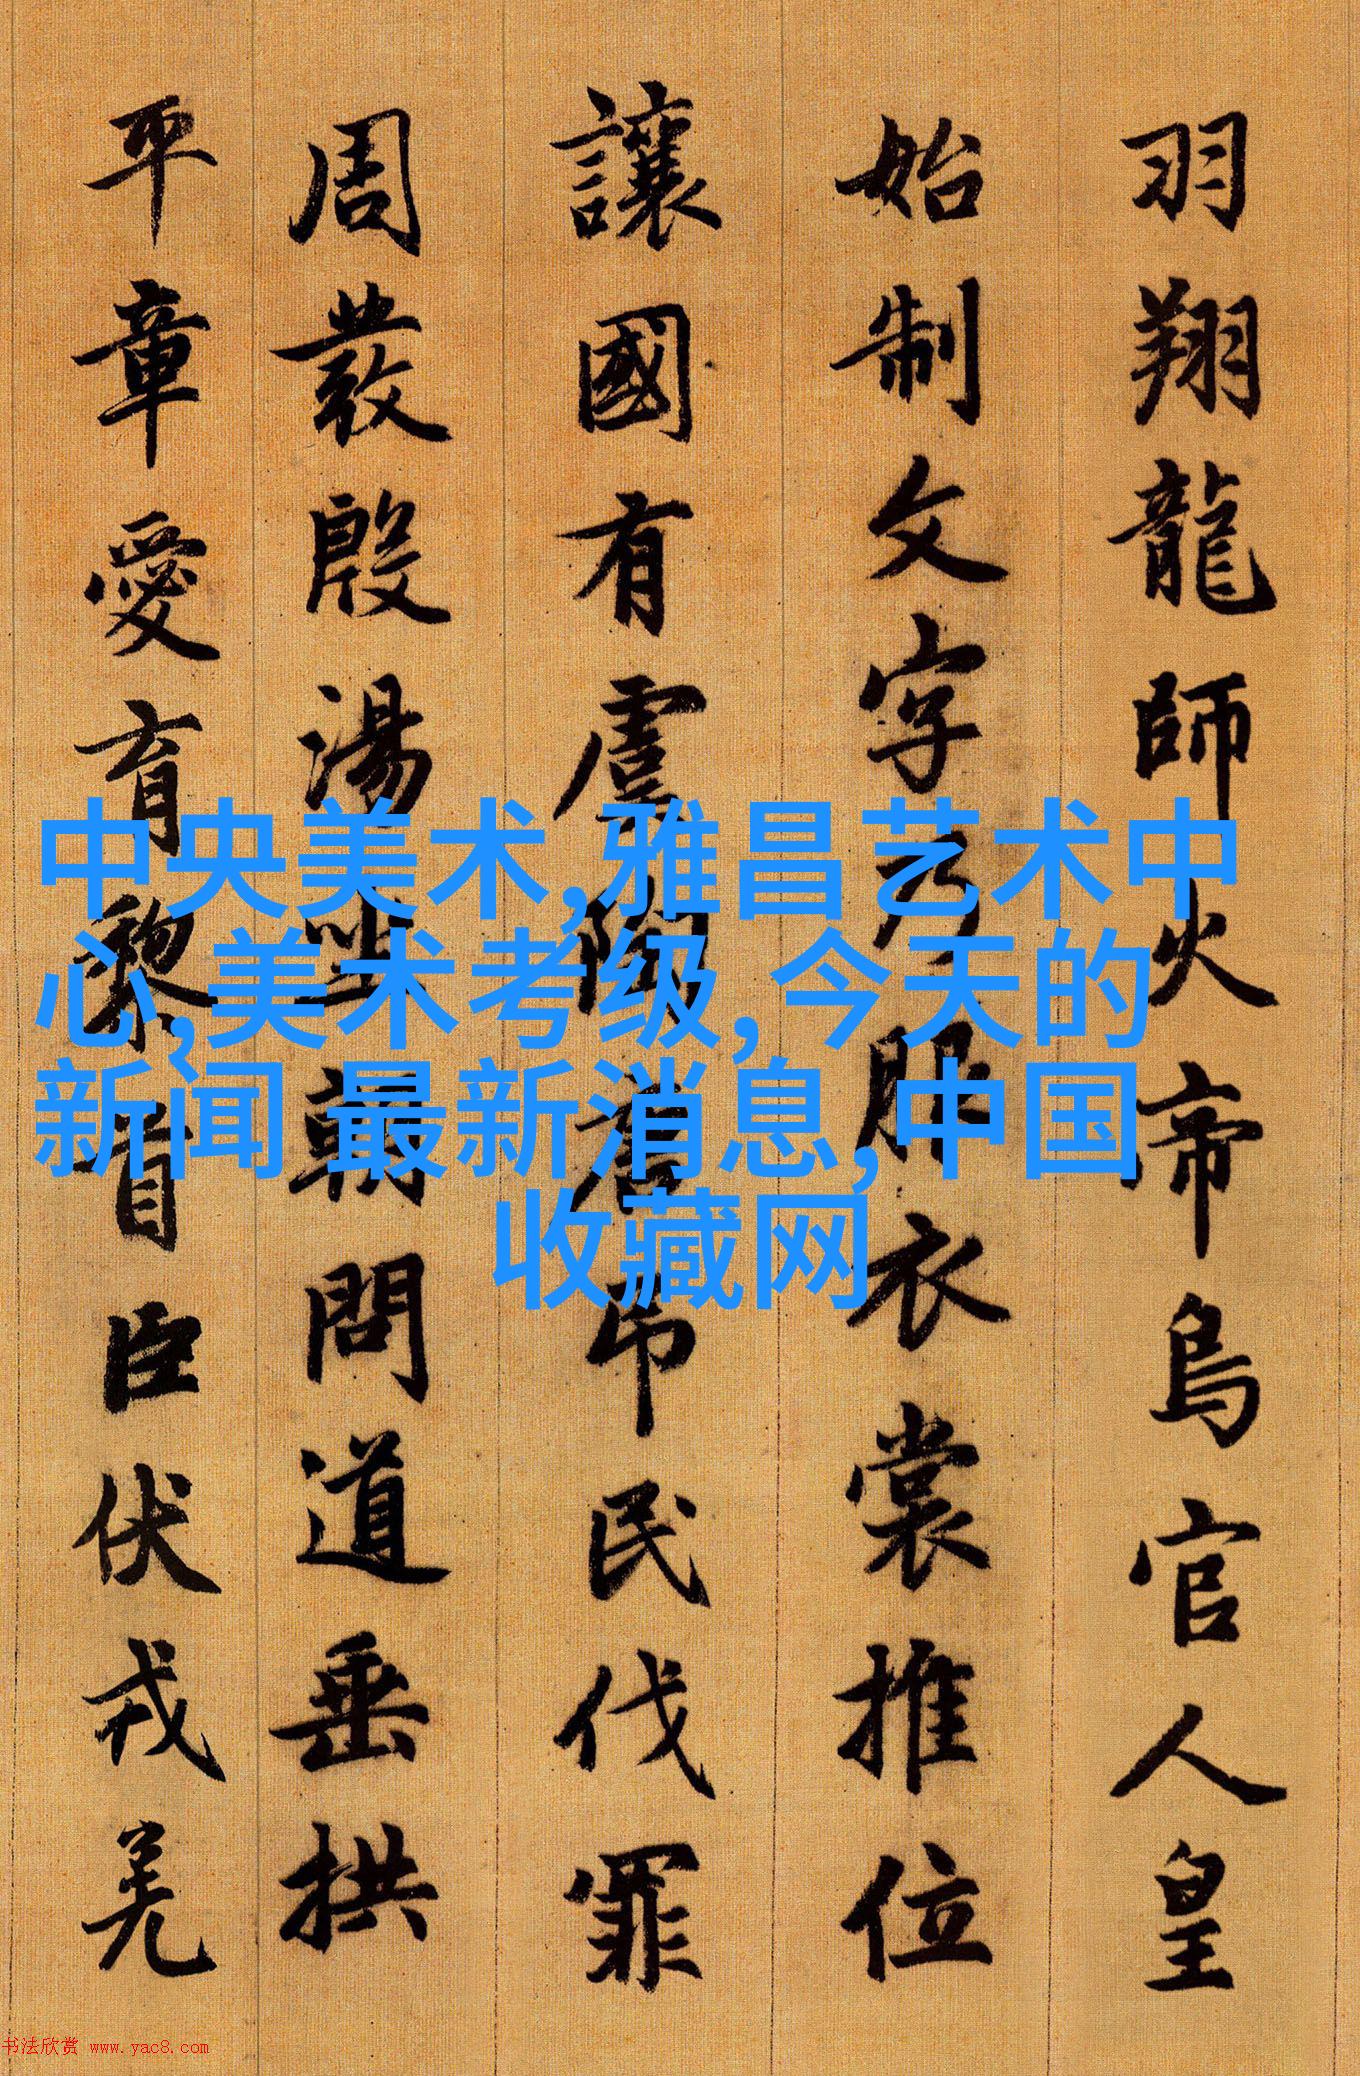 羽翔龍師火帝鳥官人皇
始制文字乃服衣裳推位
讓國有虞陶唐吊民伐罪
周發殷湯坐朝問道垂拱
平章愛育黎首臣伏戎羌
中央美术,雅昌艺术中
心,美术考级,今天的
新闻 最新消息,中国
收藏网
书法欣赏 www.yac8.com